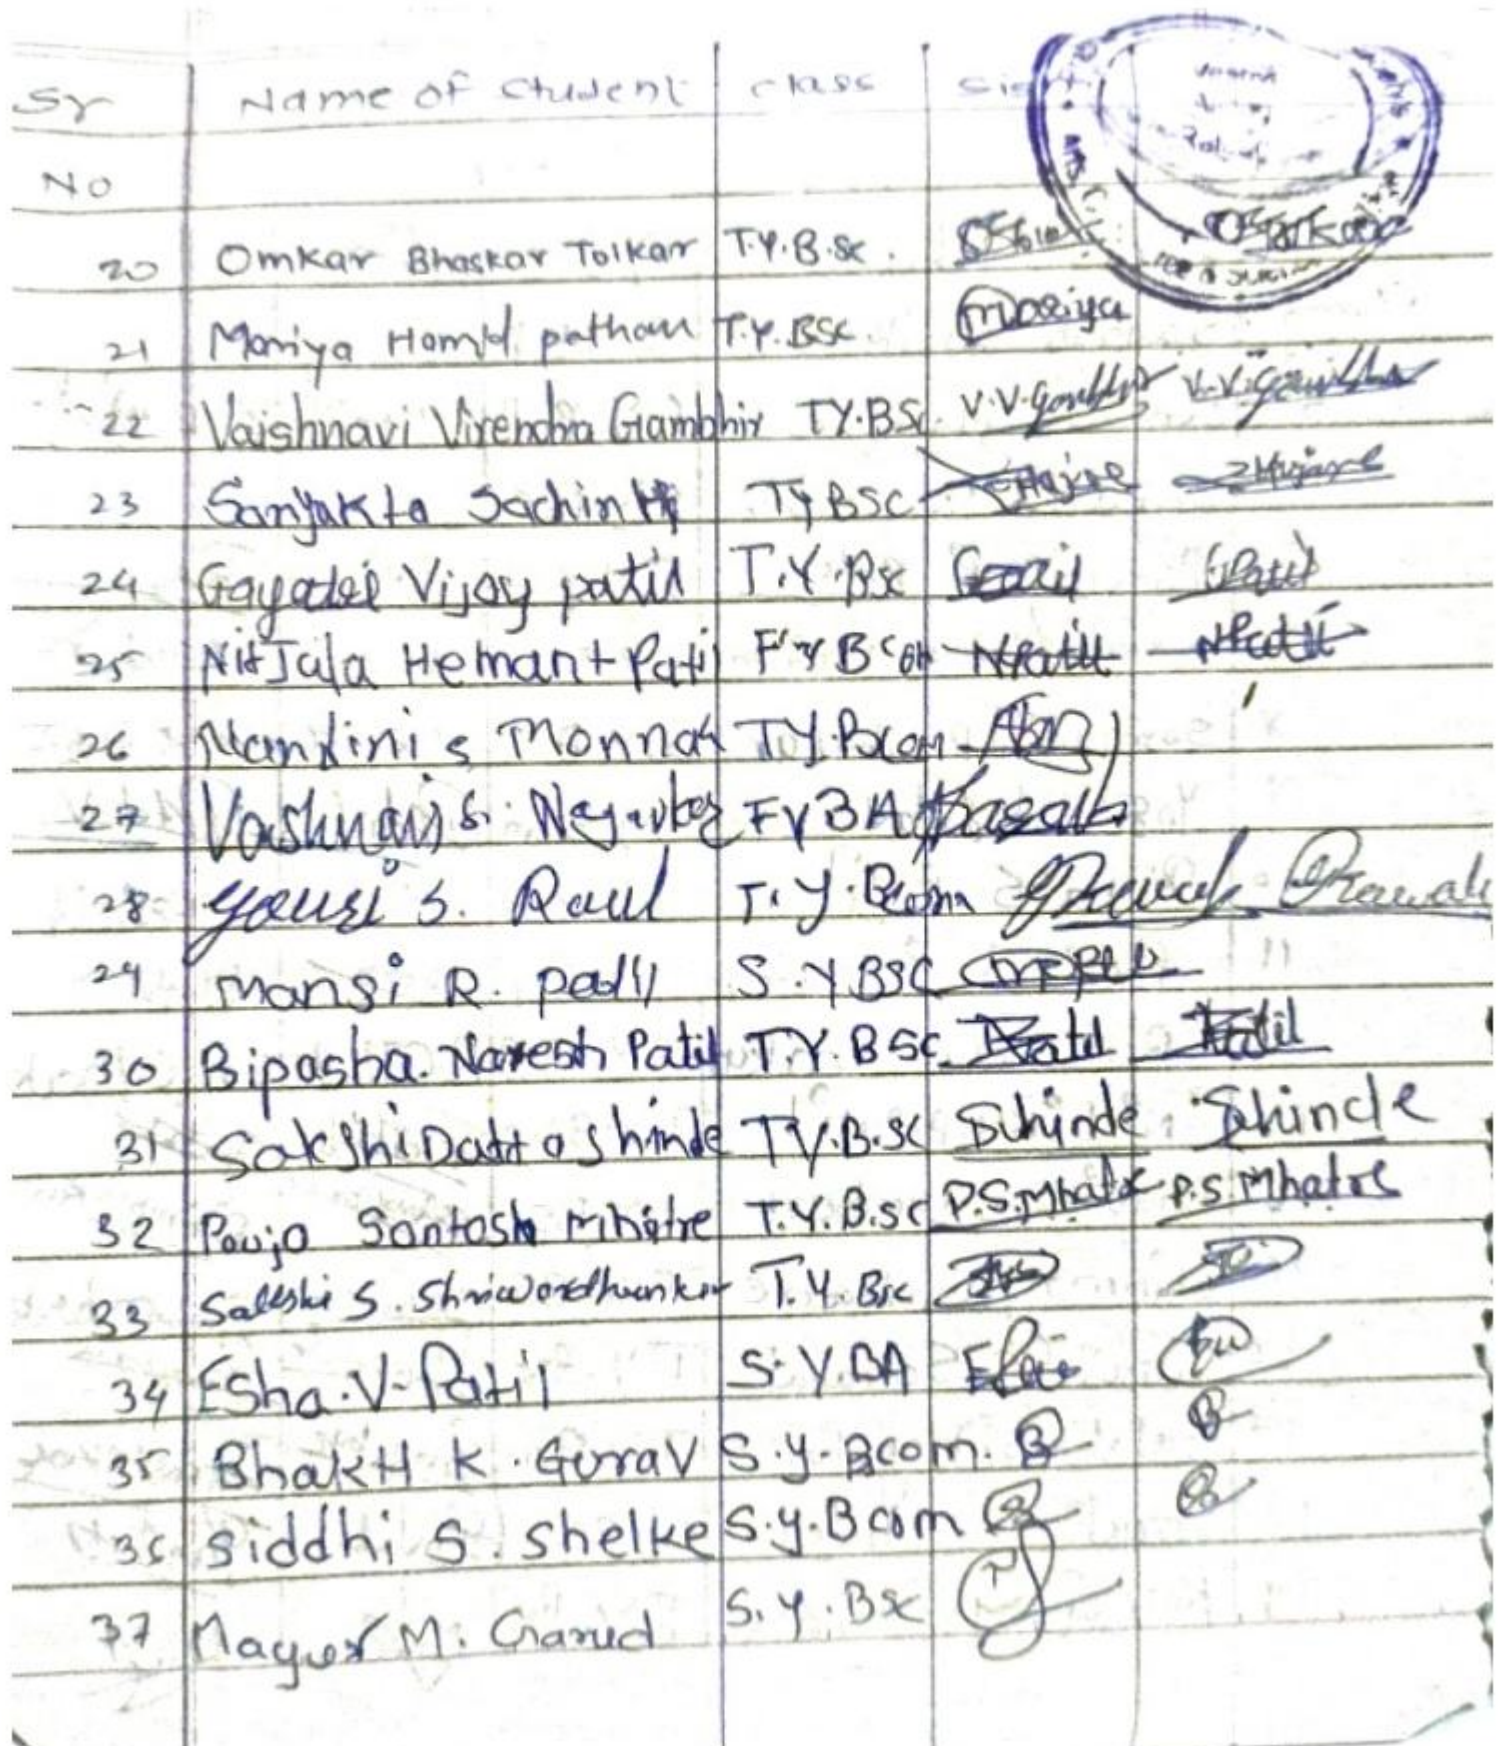 Sr Name of Student class Sign
No
20 Omkar Bhaskar Tolkar T.Y.B.sc.
21 Mariya Hamid pathan T.Y.BSc. Mariya
22 Vaishnavi Virendra Gambhir TY.BSc. V.V.Gambhir V.V.Gambhir
23 Sanyukta Sachin H TY BSC Hajare
24 Vijay patil T.Y.BSc Patil
25 Hemant Patil F Y B com NPatil NPatil
26 Nandini s T.Y.Bcom
27 S. FYBA
28 S. Raul T.Y.Bcom
29 Mansi R. patil S.YBSC
30 Bipasha. Naresh Patil T.Y.BSc Patil Patil
31 Sakshi Datta shinde TY.B.sc Shinde Shinde
32 Pooja Santosh Mhatre T.Y.B.sc P.S.Mhatre P.S.Mhatre
33 Sakshi S. Shriwardhankar T.Y.Bsc
34 Esha.V-Patil S.Y.BA
35 Bhakti K. Gurav S.y.Bcom. B B
36 Siddhi S. Shelke S.y.Bcom
37 Mayur M. Garud S.Y.BSc